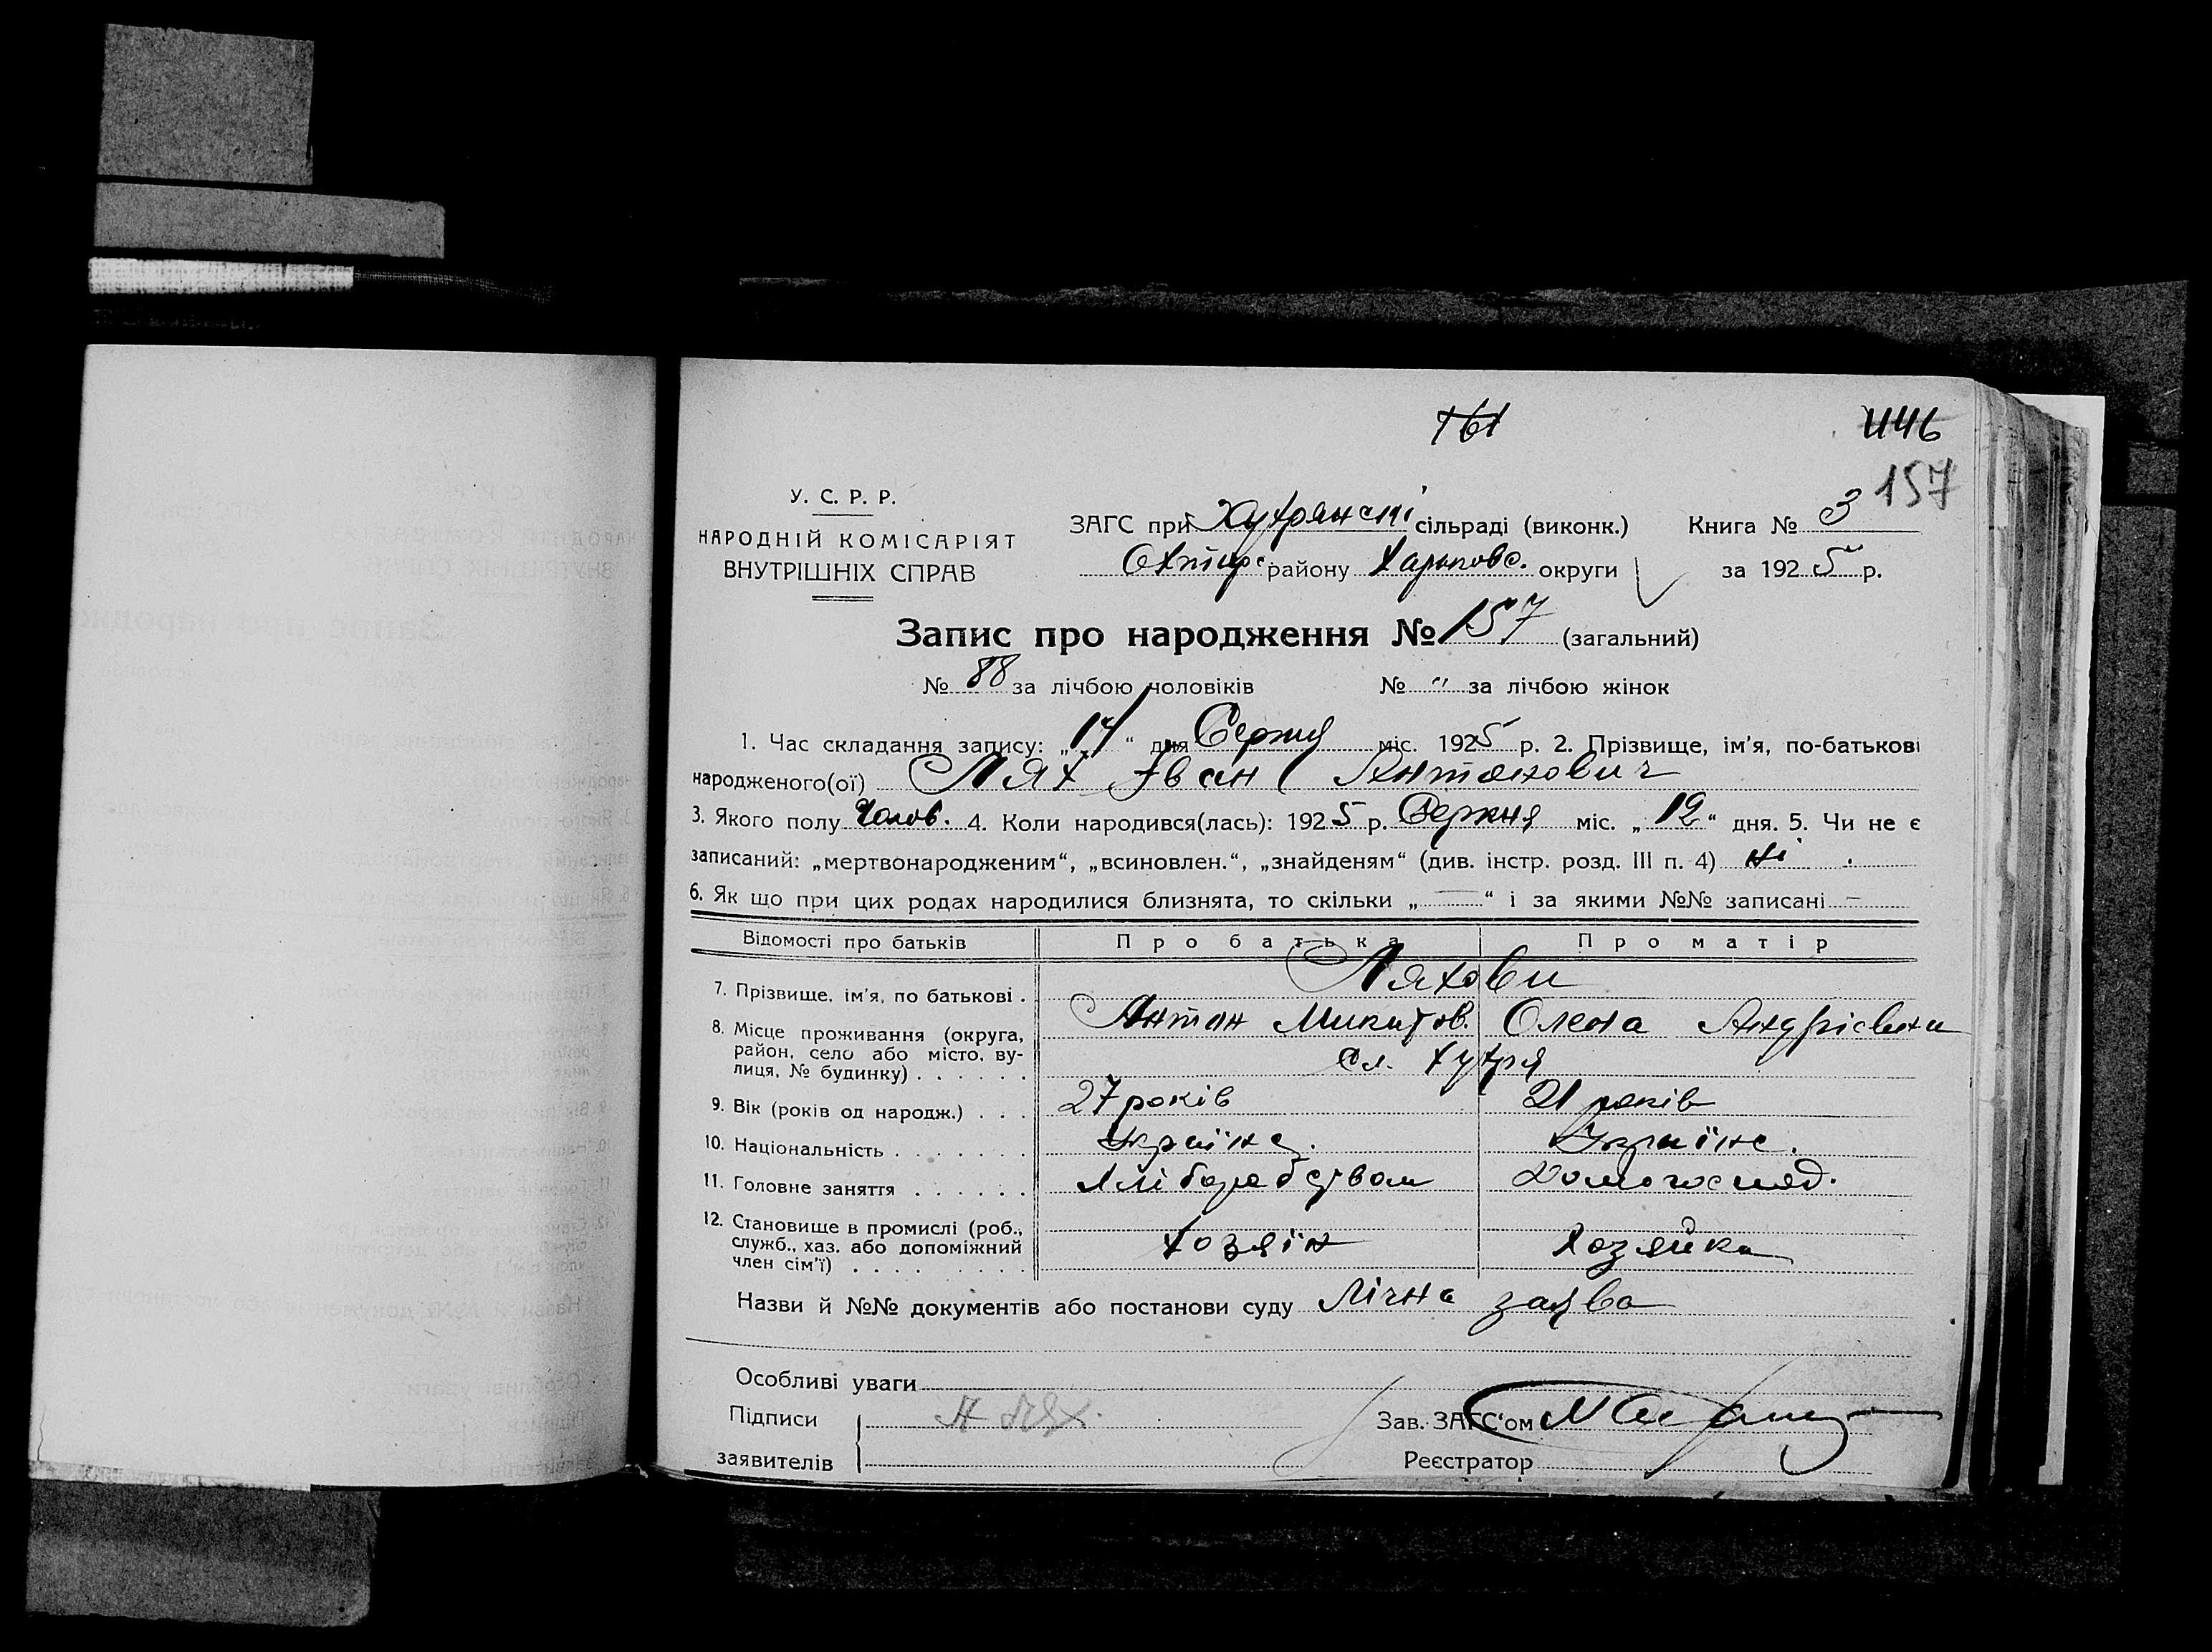 161
446
157
У. С. Р. Р.
НАРОДНІЙ КОМІСАРІЯТ
ВНУТРІШНІХ СПРАВ
ЗАГС при Хутрянскі сільраді (виконк.)
Охтирс району Харьковс. округи
Книга № 3
за 1925 р.
Запис про народження № 157 (загальний)
№ 88 за лічбою чоловіків № " за лічбою жінок
1. Час складання запису: „14“ дня Серпня міс. 1925 р. 2. Прізвище, ім’я, по-батькові
народженого(ої) Лях Іван Антонович
3. Якого полу Чолов. 4. Коли народився(лась): 1925 р. Серпня міс. „12“ дня. 5. Чи не є
записаний: „мертвонародженим“, „всиновлен.“, „знайденям“ (див. інстр. розд. III п. 4) ні
6. Як що при цих родах народилися близнята, то скільки „—“ і за якими №№ записані —
Відомості про батьків Про батька Про матір
7. Прізвище, ім’я, по батькові . Ляхови
Антон Микитов. Олена Андрієвна
8. Місце проживання (округа, район, село або місто, вулиця, № будинку) . . . . . . Сл. Хутря
9. Вік (років од народж.) . . . 27 років 21 років
10. Національність . . . . . . . Україне. Україне.
11. Головне заняття . . . . . . Хліборобством Домогоспод.
12. Становище в промислі (роб., служб., хаз. або допоміжний член сім’ї) . . . . . . . . . Хозяїн Хозяйка
Назви й №№ документів або постанови суду Лічна заява
Особливі уваги
Підписи
заявителів
А Лях.
Зав. ЗАГС’ом
Реєстратор